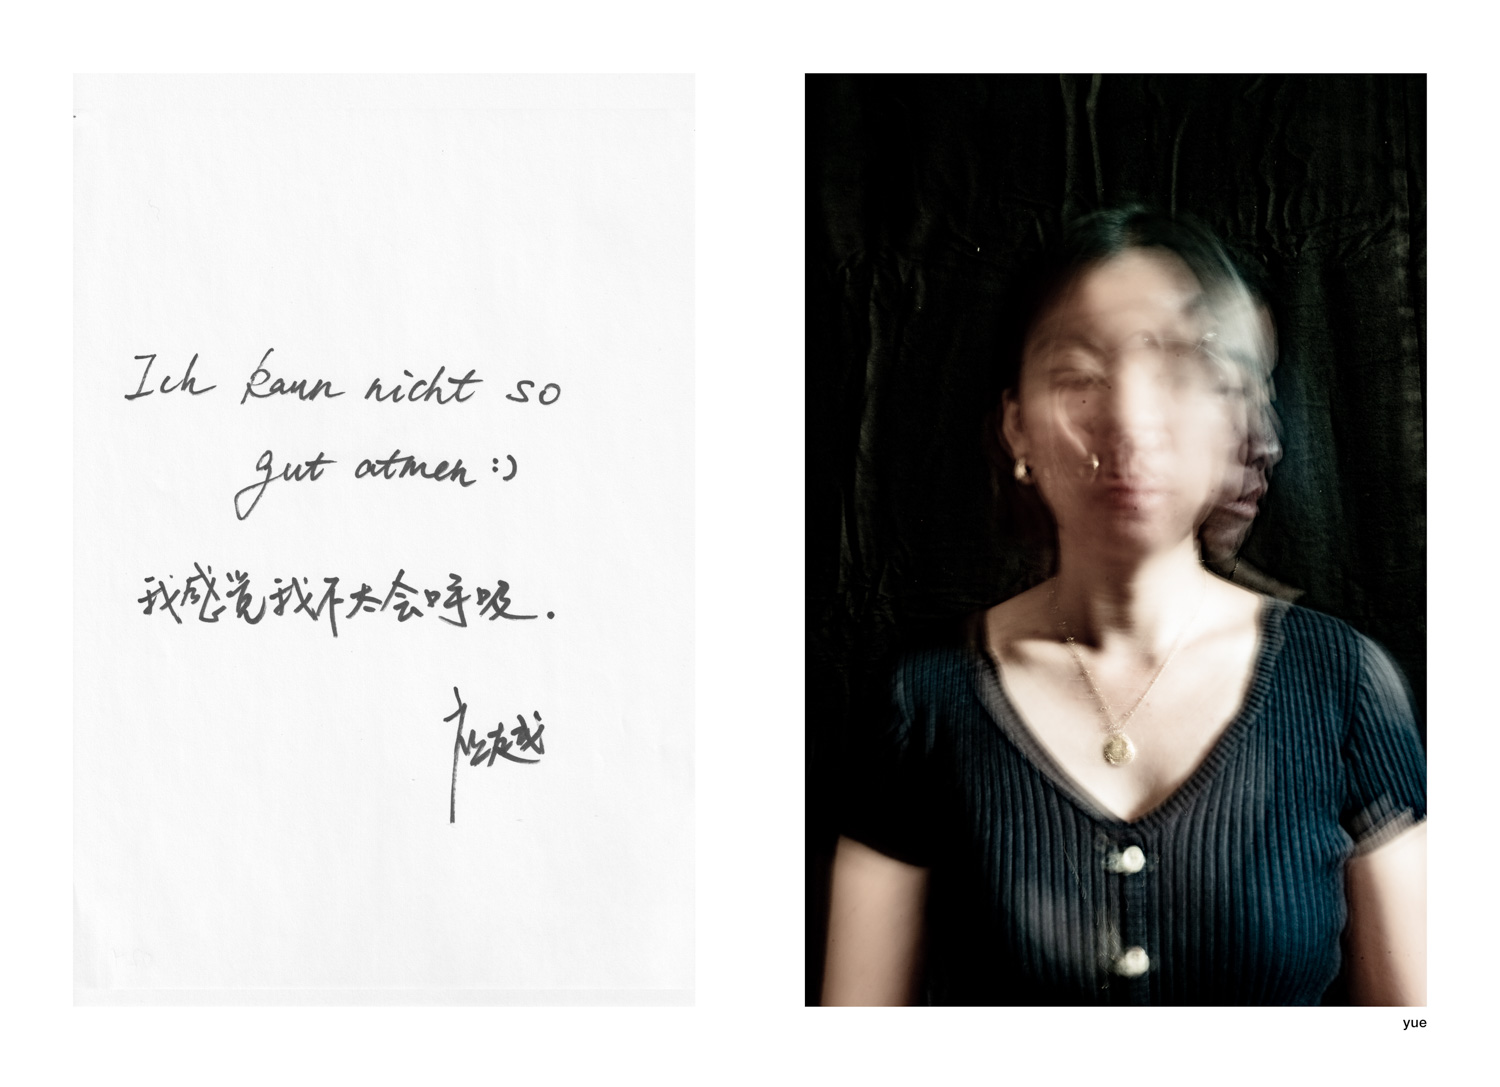 Ich kann nicht so
gut atmen :)
我感觉我不太会呼吸.
越
yue